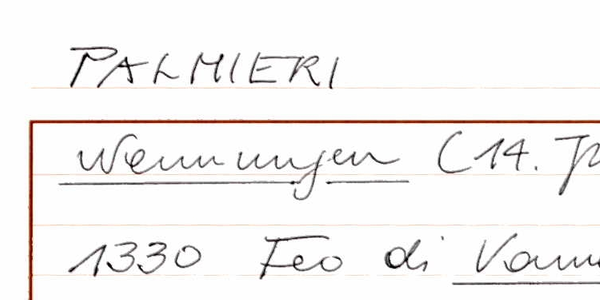 PALMIERI
Nennungen (14. J
1330 Feo di Vann